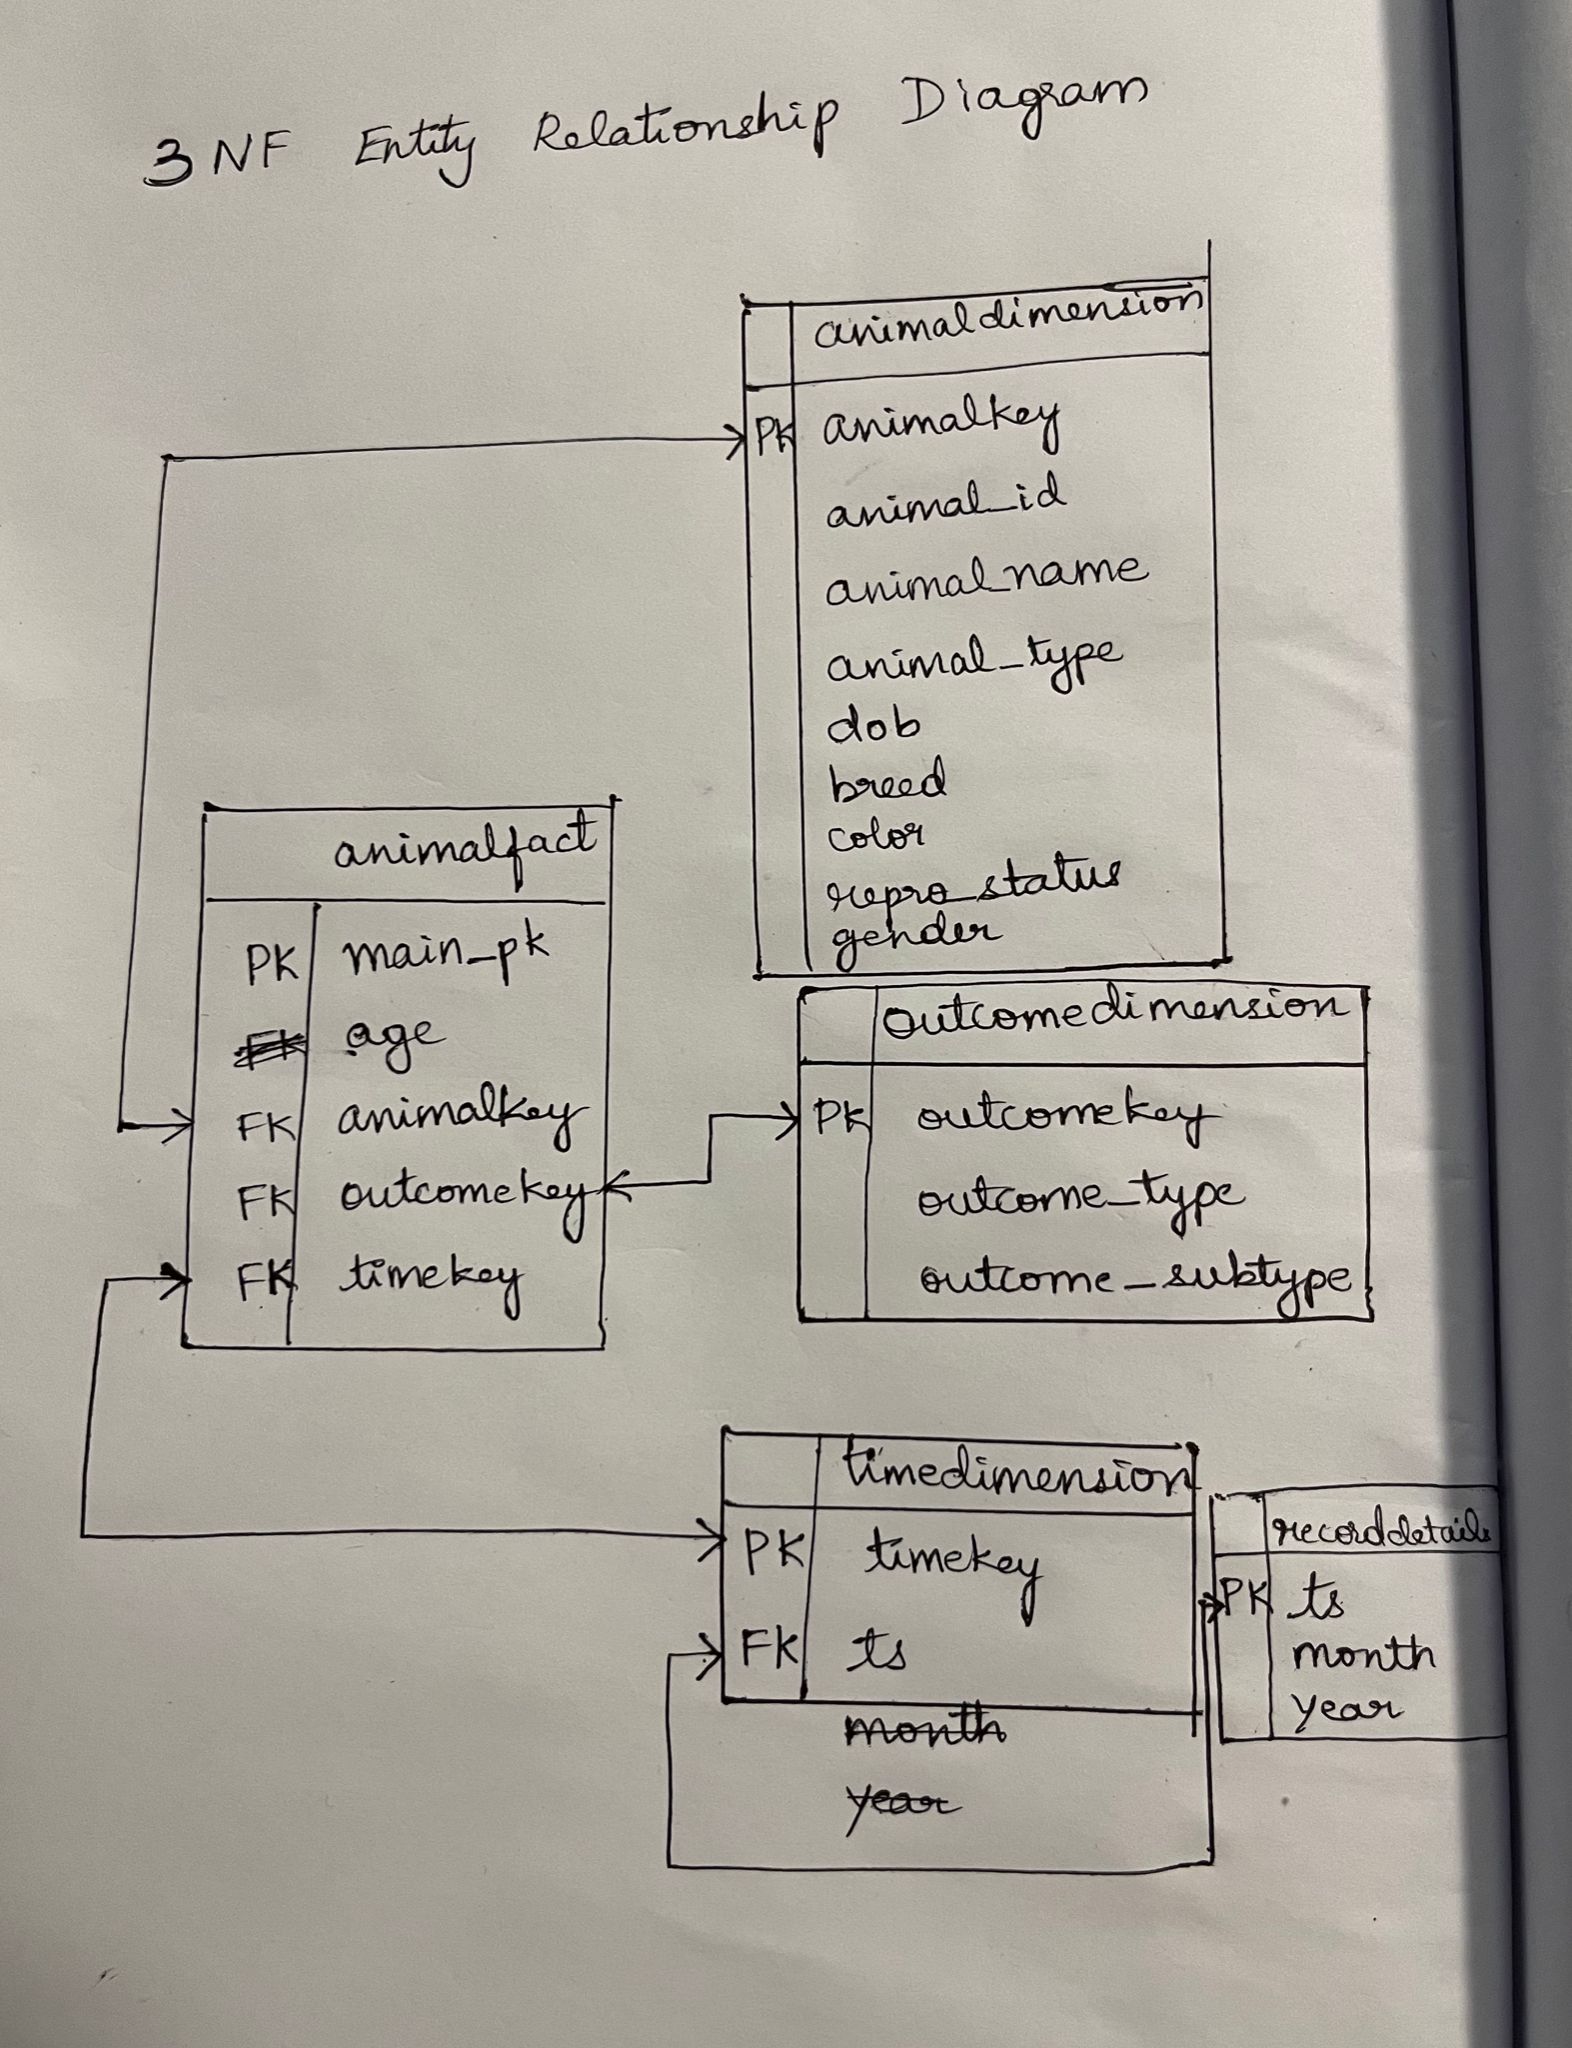 3NF Entity Relationship Diagram
animaldimension
PK animalkey
animal_id
animal_name
animal_type
dob
breed
color
repro_status
gender
animalfact
PK main_pk
FK age
FK animalkey
FK outcomekey
FK timekey
outcomedimension
PK outcomekey
outcome_type
outcome_subtype
timedimension
PK timekey
FK ts
month
year
recorddetails
PK ts
month
year